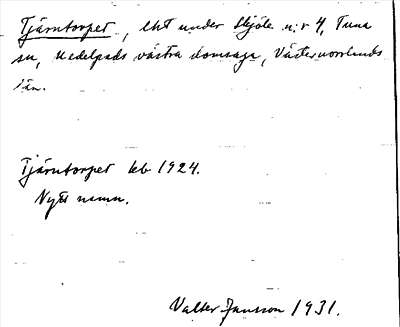 Tjärntorpet, lht under Skjöle n:r 4, Tuna
sn, Medelpads västra domsaga, Västernorrlands
län.
Tjärntorpet leb 1924.
Nytt namn.
Valter Jansson 1931.